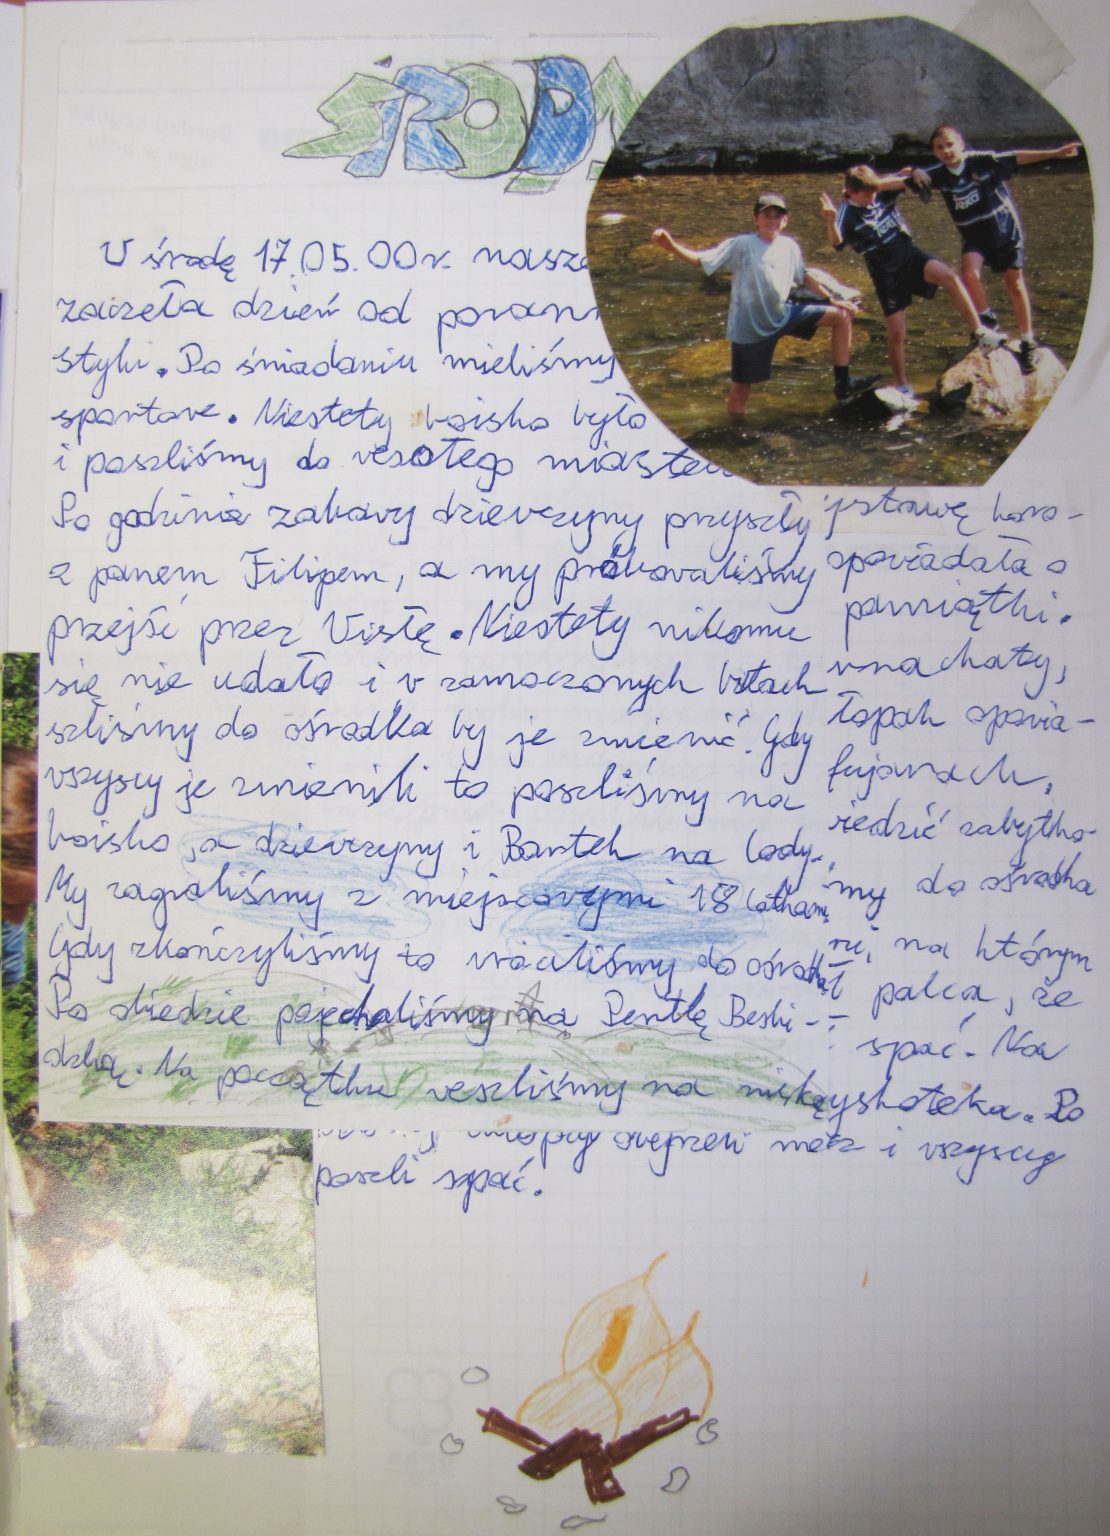 ŚRODA
W środę 17.05.00r. nasza
zaczęła dzień od porann
styki. Po śniadaniu mieliśmy
sportowe. Niestety boisko było
i poszliśmy do wesołego miastecz
Po godzinie zabawy dziewczyny przyszły
z panem Filipem, a my próbowaliśmy
przejść przez Wisłę. Niestety nikomu
się nie udało i w zamoczonych butach
szliśmy do ośrodka by je zmienić. Gdy
wszyscy je zmienili to poszliśmy na
boisko, a dziewczyny i Bartek na lody.
My zagraliśmy z miejscowymi 18 latkami
Gdy zkończyliśmy to wróciliśmy do ośrodka
Po obiedzie pojechaliśmy na Pentlę Beski-
dzką. Na początku weszliśmy na niską
ystawę koro-
opowiadała o
pamiątki.
wna chaty,
łopak opowia-
fujarach.
iedzić zabytko-
my do ośrodka
na którym
palca, że
spać. Na
yskoteka. Po
chłopcy obejrzeli mecz i wszyscy
poszli spać.